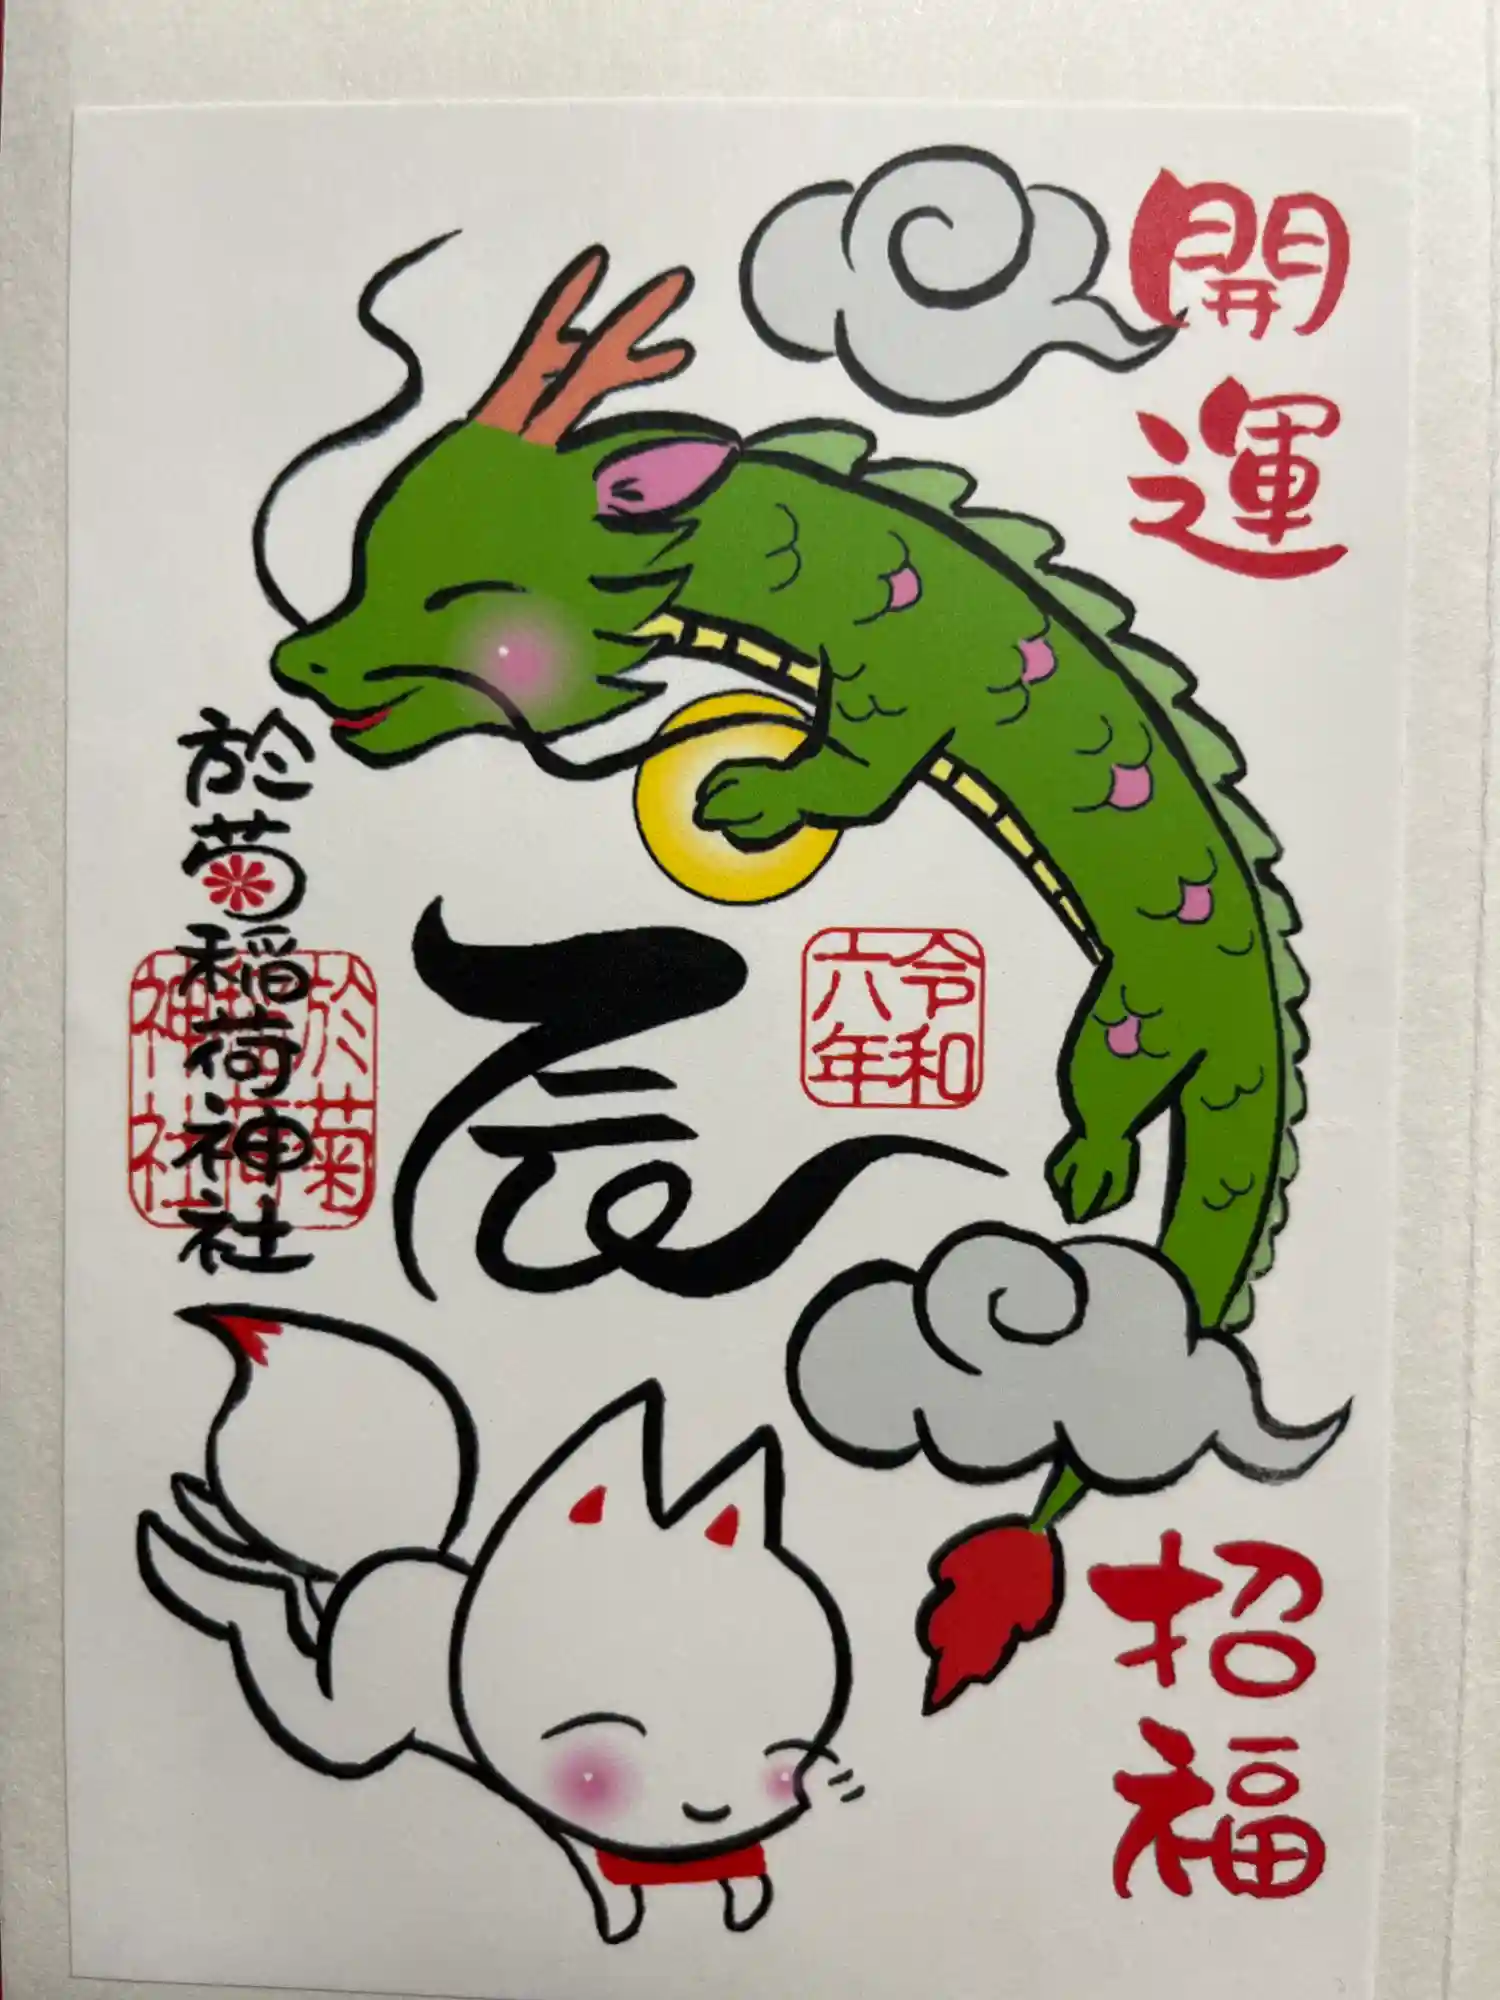 開運
招福
辰
令和
六年
於菊稲荷神社
於菊
稲荷
神社